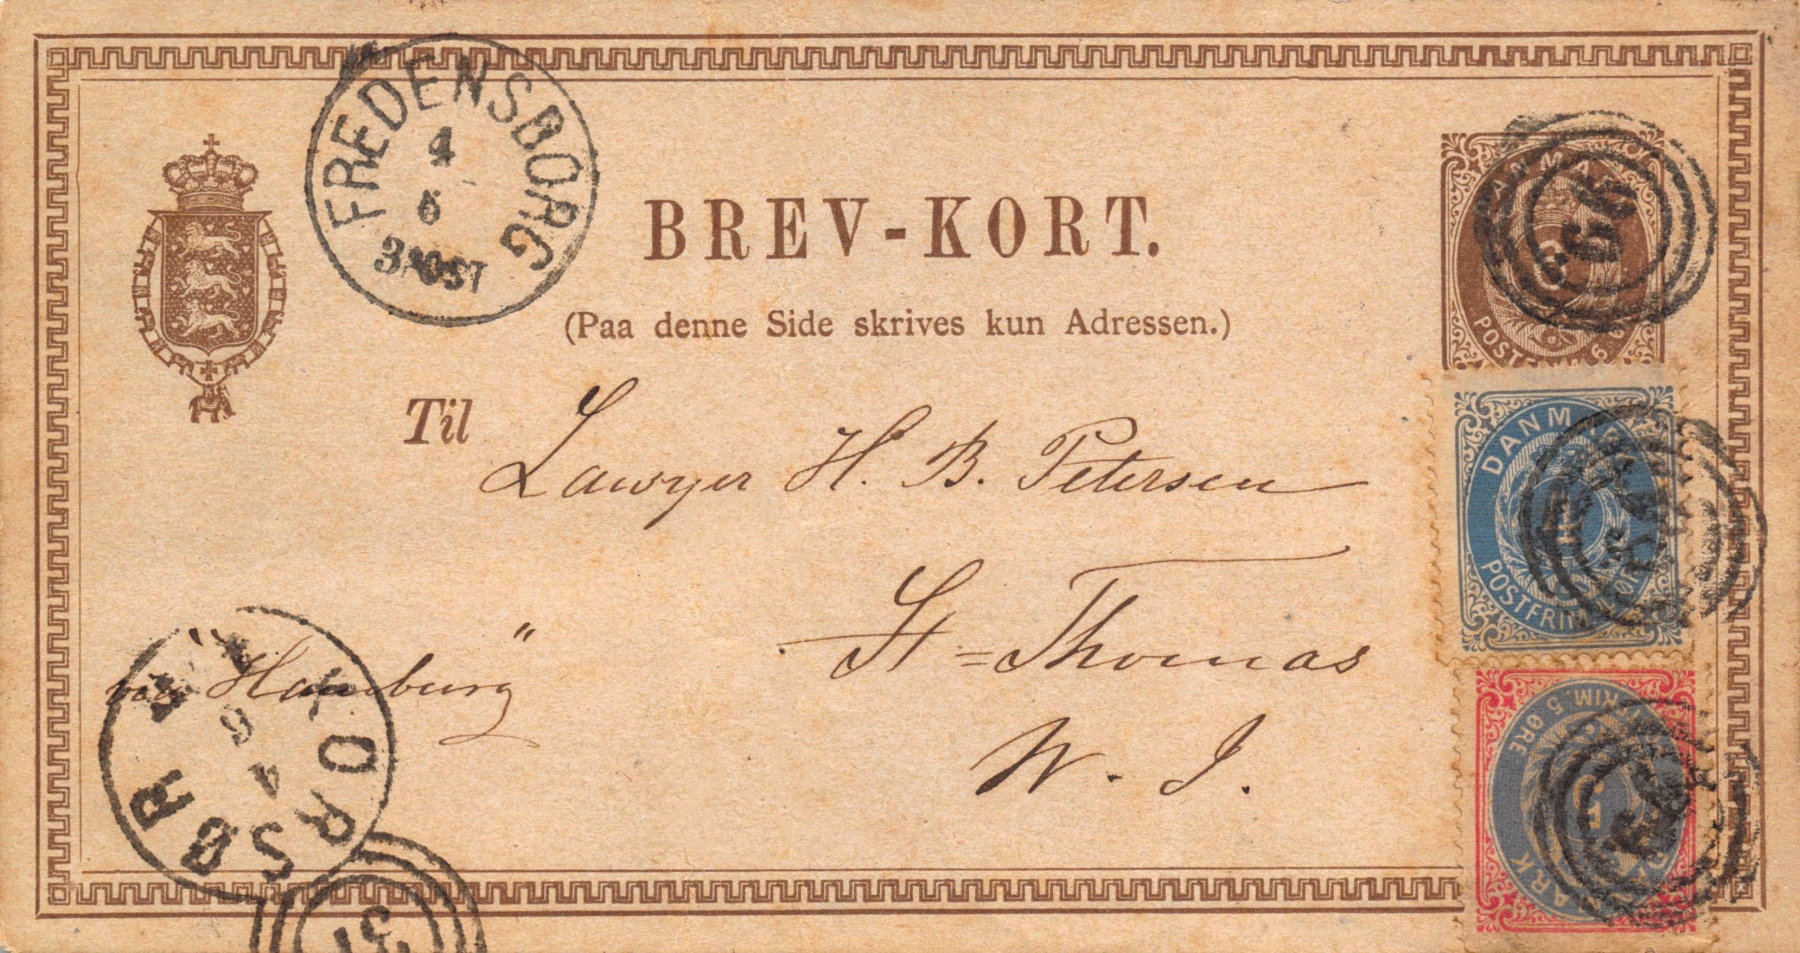 FREDENSBORG
4
6
3 POST
BREV-KORT.
(Paa denne Side skrives kun Adressen.)
Til
Lawyer H. B. Petersen
St = Thomas
W. I.
via Hamburg"
KORSØR
6
4
31
DANM
POSTF 6
66
DANM
4
POSTFRIM
POSTFRIM. 5 ØRE
5